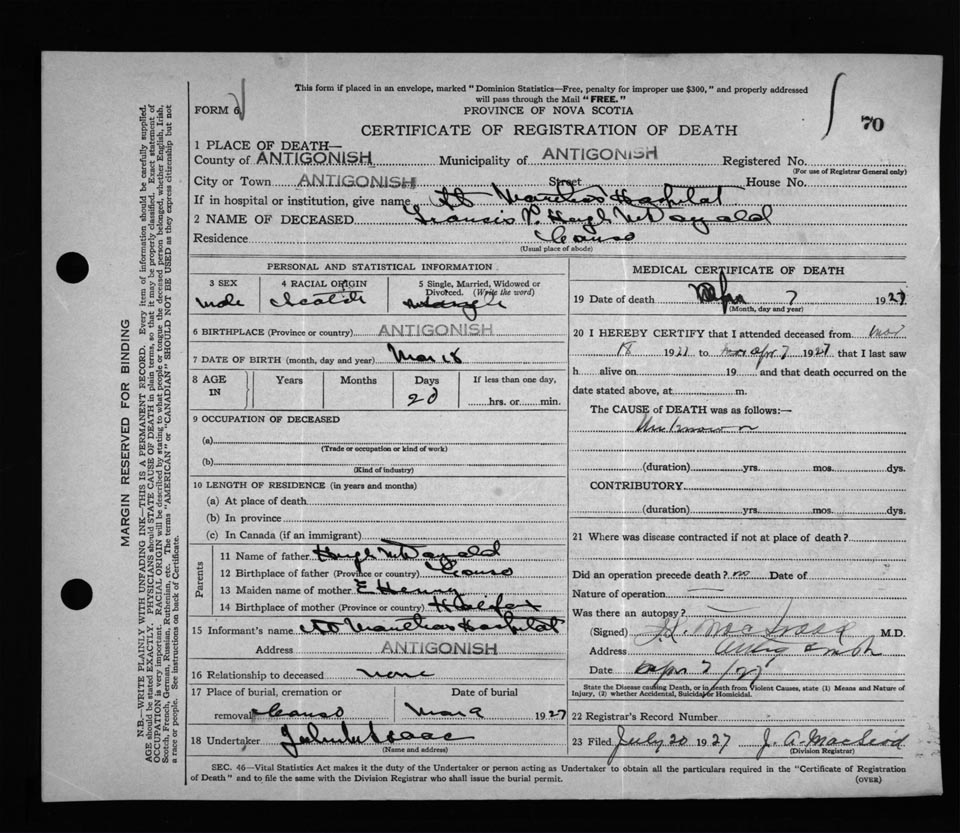 This form if placed in an envelope, marked "Dominion Statistics—Free, penalty for improper use $300," and properly addressed
will pass through the Mail "FREE."
FORM 6
PROVINCE OF NOVA SCOTIA
CERTIFICATE OF REGISTRATION OF DEATH
70
1 PLACE OF DEATH—
County of ANTIGONISH Municipality of ANTIGONISH Registered No.
(For use of Registrar General only)
City or Town ANTIGONISH Street House No.
If in hospital or institution, give name St Marthas Hospital
2 NAME OF DECEASED Francis P. Hugh McDonald
Residence Canso
(Usual place of abode)
PERSONAL AND STATISTICAL INFORMATION
3 SEX 4 RACIAL ORIGIN 5 Single, Married, Widowed or Divorced. (Write the word)
male Scotch Single
6 BIRTHPLACE (Province or country) ANTIGONISH
7 DATE OF BIRTH (month, day and year) Mar 18
8 AGE IN Years Months Days If less than one day,
20 hrs. or min.
9 OCCUPATION OF DECEASED
(a)
(Trade or occupation or kind of work)
(b)
(Kind of industry)
10 LENGTH OF RESIDENCE (in years and months)
(a) At place of death
(b) In province
(c) In Canada (if an immigrant)
Parents
11 Name of father Hugh McDonald
12 Birthplace of father (Province or country) Canso
13 Maiden name of mother E Henry
14 Birthplace of mother (Province or country) Halifax
15 Informant's name St Marthas Hospital
Address ANTIGONISH
16 Relationship to deceased none
17 Place of burial, cremation or Date of burial
removal Canso Mar 9 1927
18 Undertaker
(Name and address)
MEDICAL CERTIFICATE OF DEATH
19 Date of death Apr 7 1927
(Month, day and year)
20 I HEREBY CERTIFY that I attended deceased from Mar
18 1927 to Apr 7 1927 that I last saw
h alive on 19 and that death occurred on the
date stated above, at m.
The CAUSE of DEATH was as follows:—
Unknown
(duration) yrs. mos. dys.
CONTRIBUTORY
(duration) yrs. mos. dys.
21 Where was disease contracted if not at place of death?
Did an operation precede death? no Date of
Nature of operation —
Was there an autopsy? —
(Signed) MacIsaac M.D.
Address Antigonish
Date Apr 7/27
State the Disease causing Death, or in death from Violent Causes, state (1) Means and Nature of
Injury, (2) whether Accidental, Suicidal or Homicidal.
22 Registrar's Record Number
23 Filed July 20 1927 J. A. MacLeod
(Division Registrar)
SEC. 46—Vital Statistics Act makes it the duty of the Undertaker or person acting as Undertaker to obtain all the particulars required in the "Certificate of Registration
of Death" and to file the same with the Division Registrar who shall issue the burial permit.
(OVER)
MARGIN RESERVED FOR BINDING
N.B.—WRITE PLAINLY WITH UNFADING INK—THIS IS A PERMANENT RECORD. Every item of information should be carefully supplied.
AGE should be stated EXACTLY. PHYSICIANS should STATE CAUSE OF DEATH in plain terms, so that it may be properly classified. Exact statement of
OCCUPATION is very important. RACIAL ORIGIN will be described by stating to what people or tongue the deceased person belonged, whether English, Irish,
Scotch, French, German, Russian, Ruthenian, etc. The terms "AMERICAN" or "CANADIAN" SHOULD NOT BE USED as they express citizenship but not
a race or people. See instructions on back of Certificate.